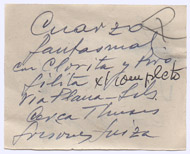 Cuarzo
fantasma
con Clorita y
Lilita x completo
Via Plana - Lis
cerca Thusis
Grisons Suiza